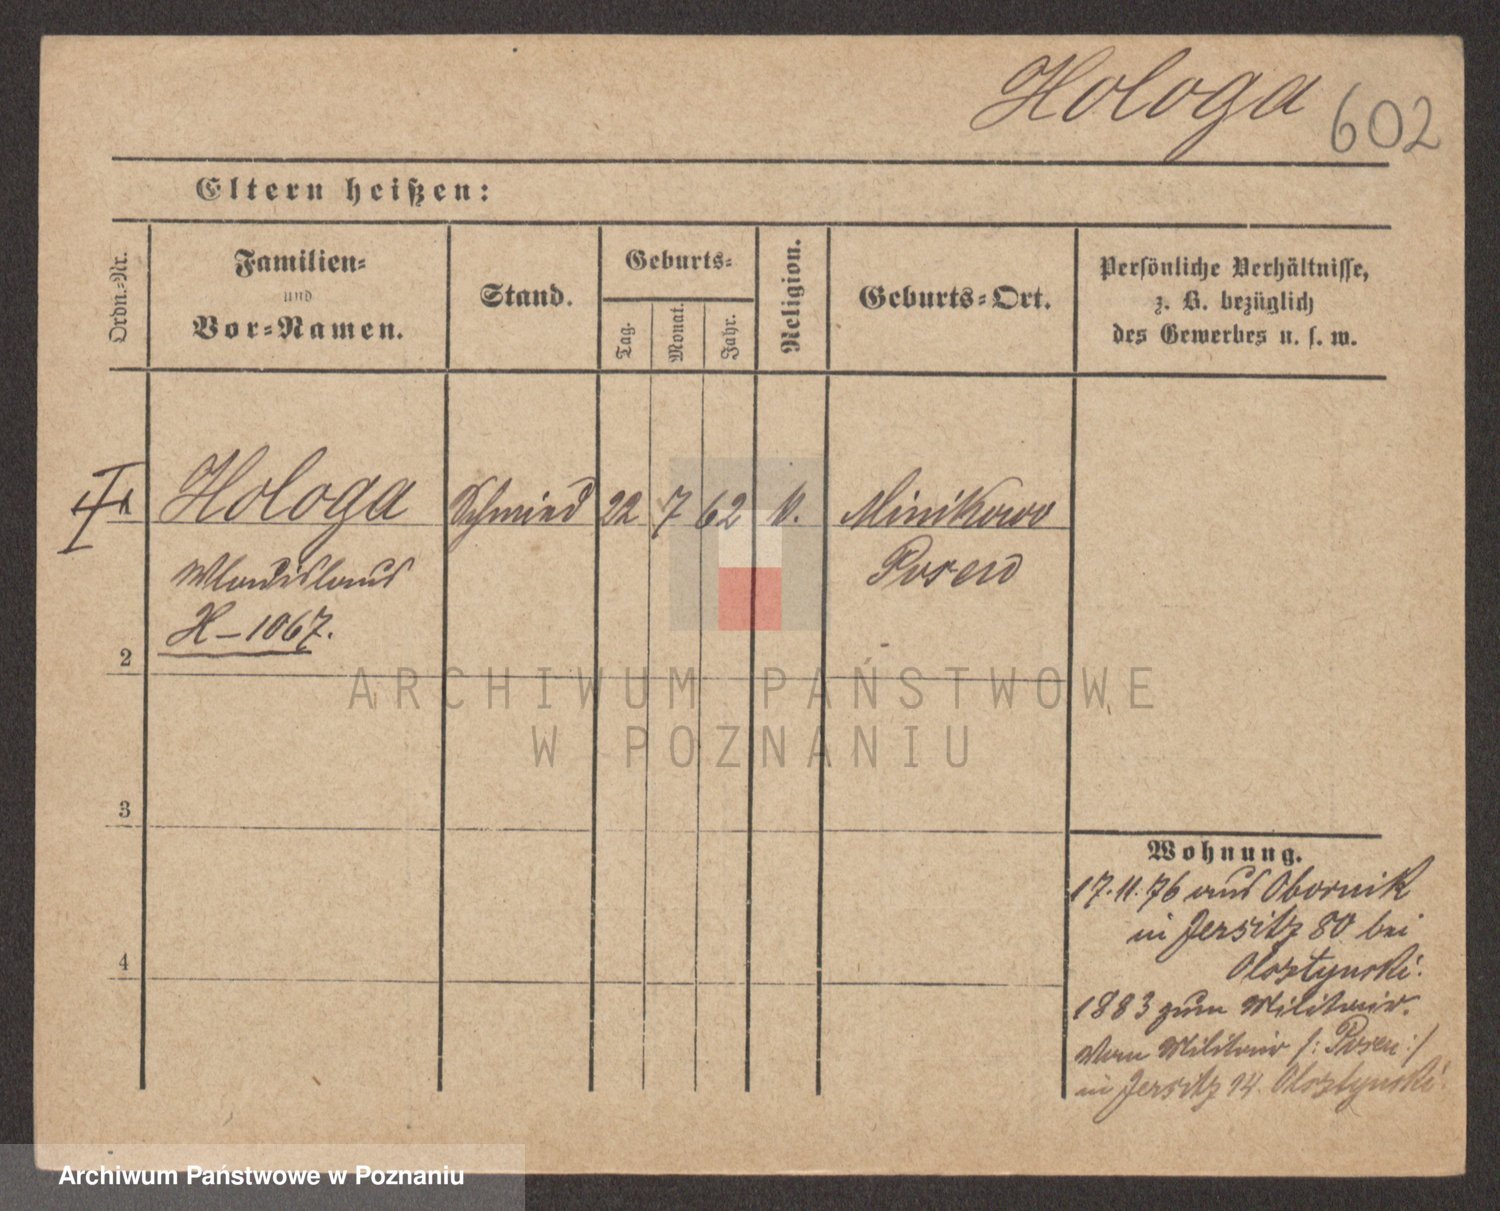 Hologa 602
Eltern heißen:
Ordn.-Nr.
Familien-
und
Vor-Namen.
Stand.
Geburts-
Tag.
Monat.
Jahr.
Religion.
Geburts-Ort.
Persönliche Verhältnisse,
z. B. bezüglich
des Gewerbes u. s. w.
Hologa Schmied 22 7 62 Minikowo
Wladislaus Posen
H-1067.
2
3
4
Wohnung.
17.11.76 aus Obornik
in Jersitz 80 bei
Olsztynski.
1883 zum Militair.
Vom Militair /: Posen :/
in Jersitz 14. Olsztynski
ARCHIWUM PAŃSTWOWE
W POZNANIU
Archiwum Państwowe w Poznaniu